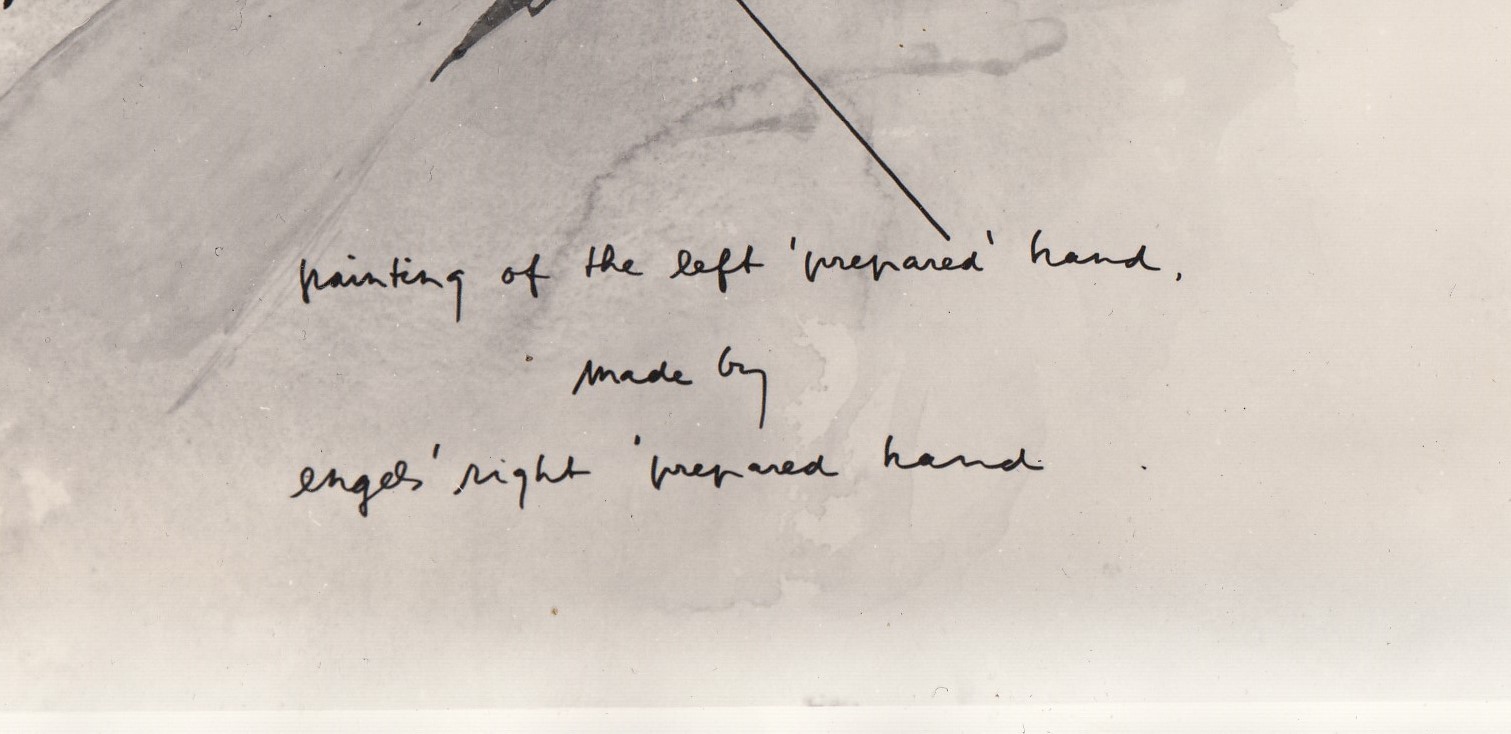 painting of the left 'prepared' hand,
made by
engels' right 'prepared hand.